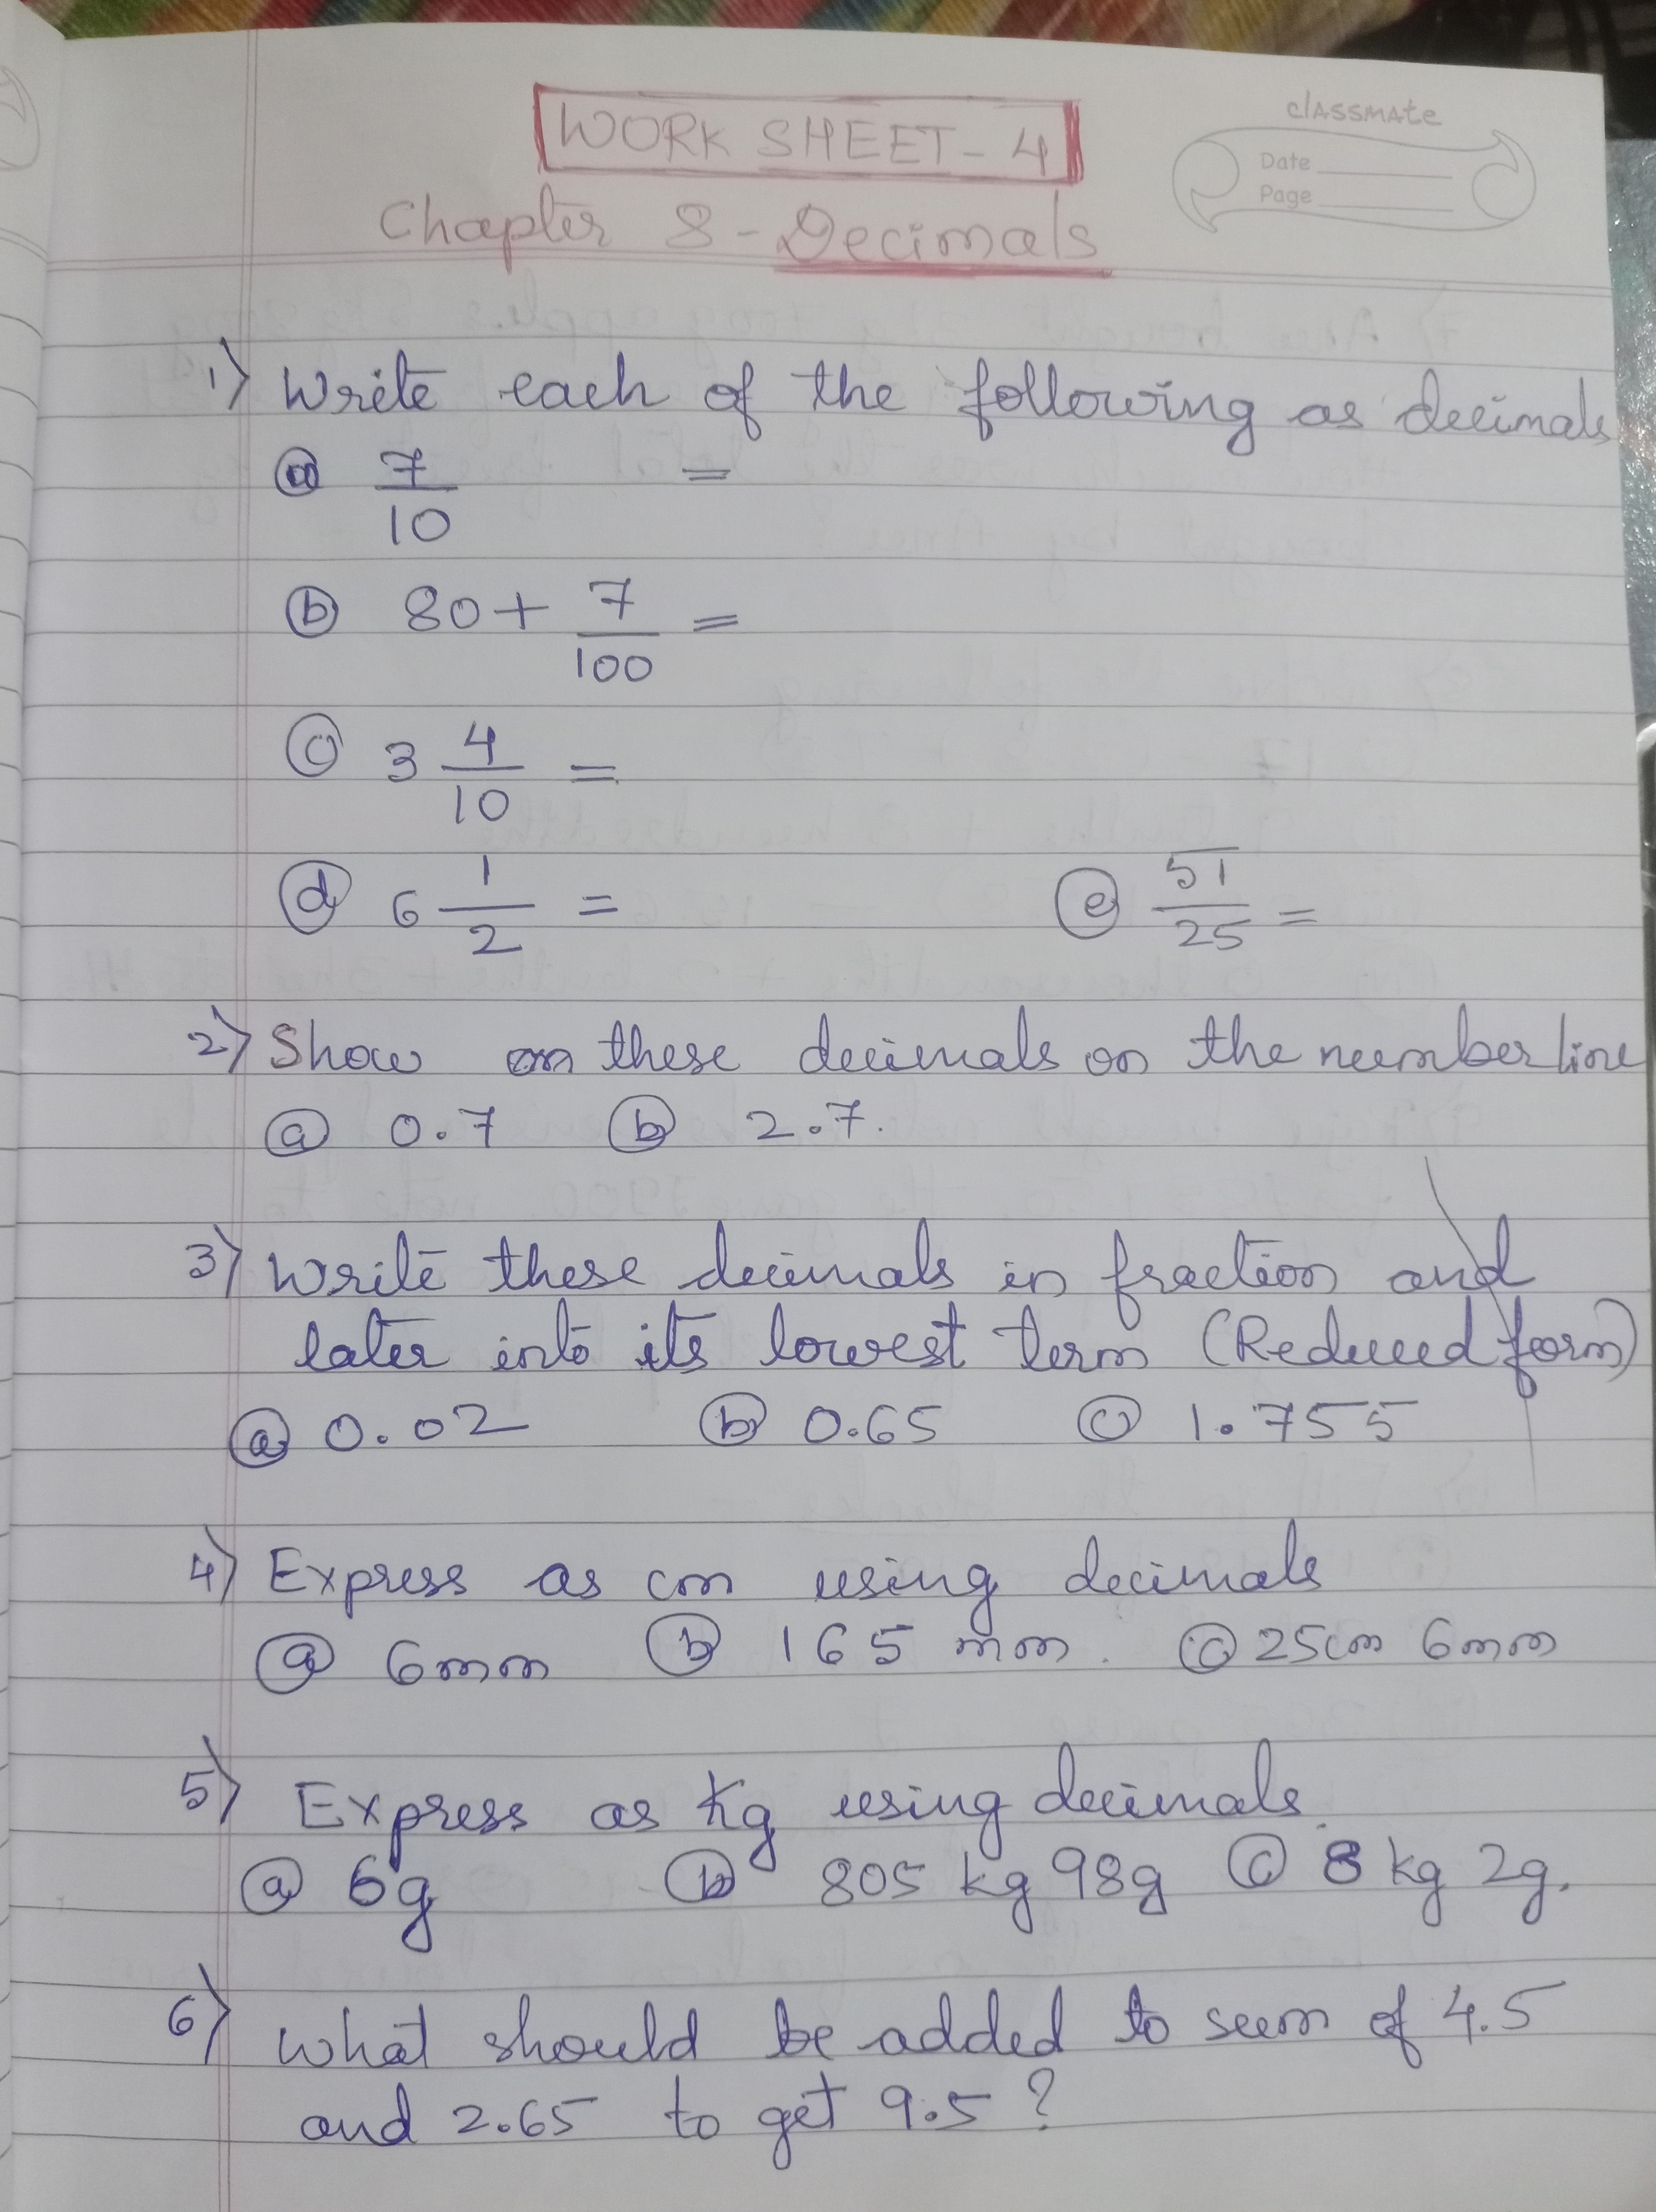 WORK SHEET - 4
classmate
Date
Page
Chapter 8 - Decimals
1) Write each of the following as decimals
(a) 7/10 =
(b) 80 + 7/100 =
(c) 3 4/10 =
(d) 6 1/2 = (e) 51/25 =
2) Show these decimals on the number line
(a) 0.7 (b) 2.7.
3) Write these decimals in fraction and
later into its lowest term (Reduced form)
(a) 0.02 (b) 0.65 (c) 1.755
4) Express as cm using decimals
(a) 6mm (b) 165 mm. (c) 25cm 6mm
5) Express as Kg using decimals.
(a) 6g (b) 805 kg 98g (c) 8 kg 2g.
6) What should be added to sum of 4.5
and 2.65 to get 9.5 ?